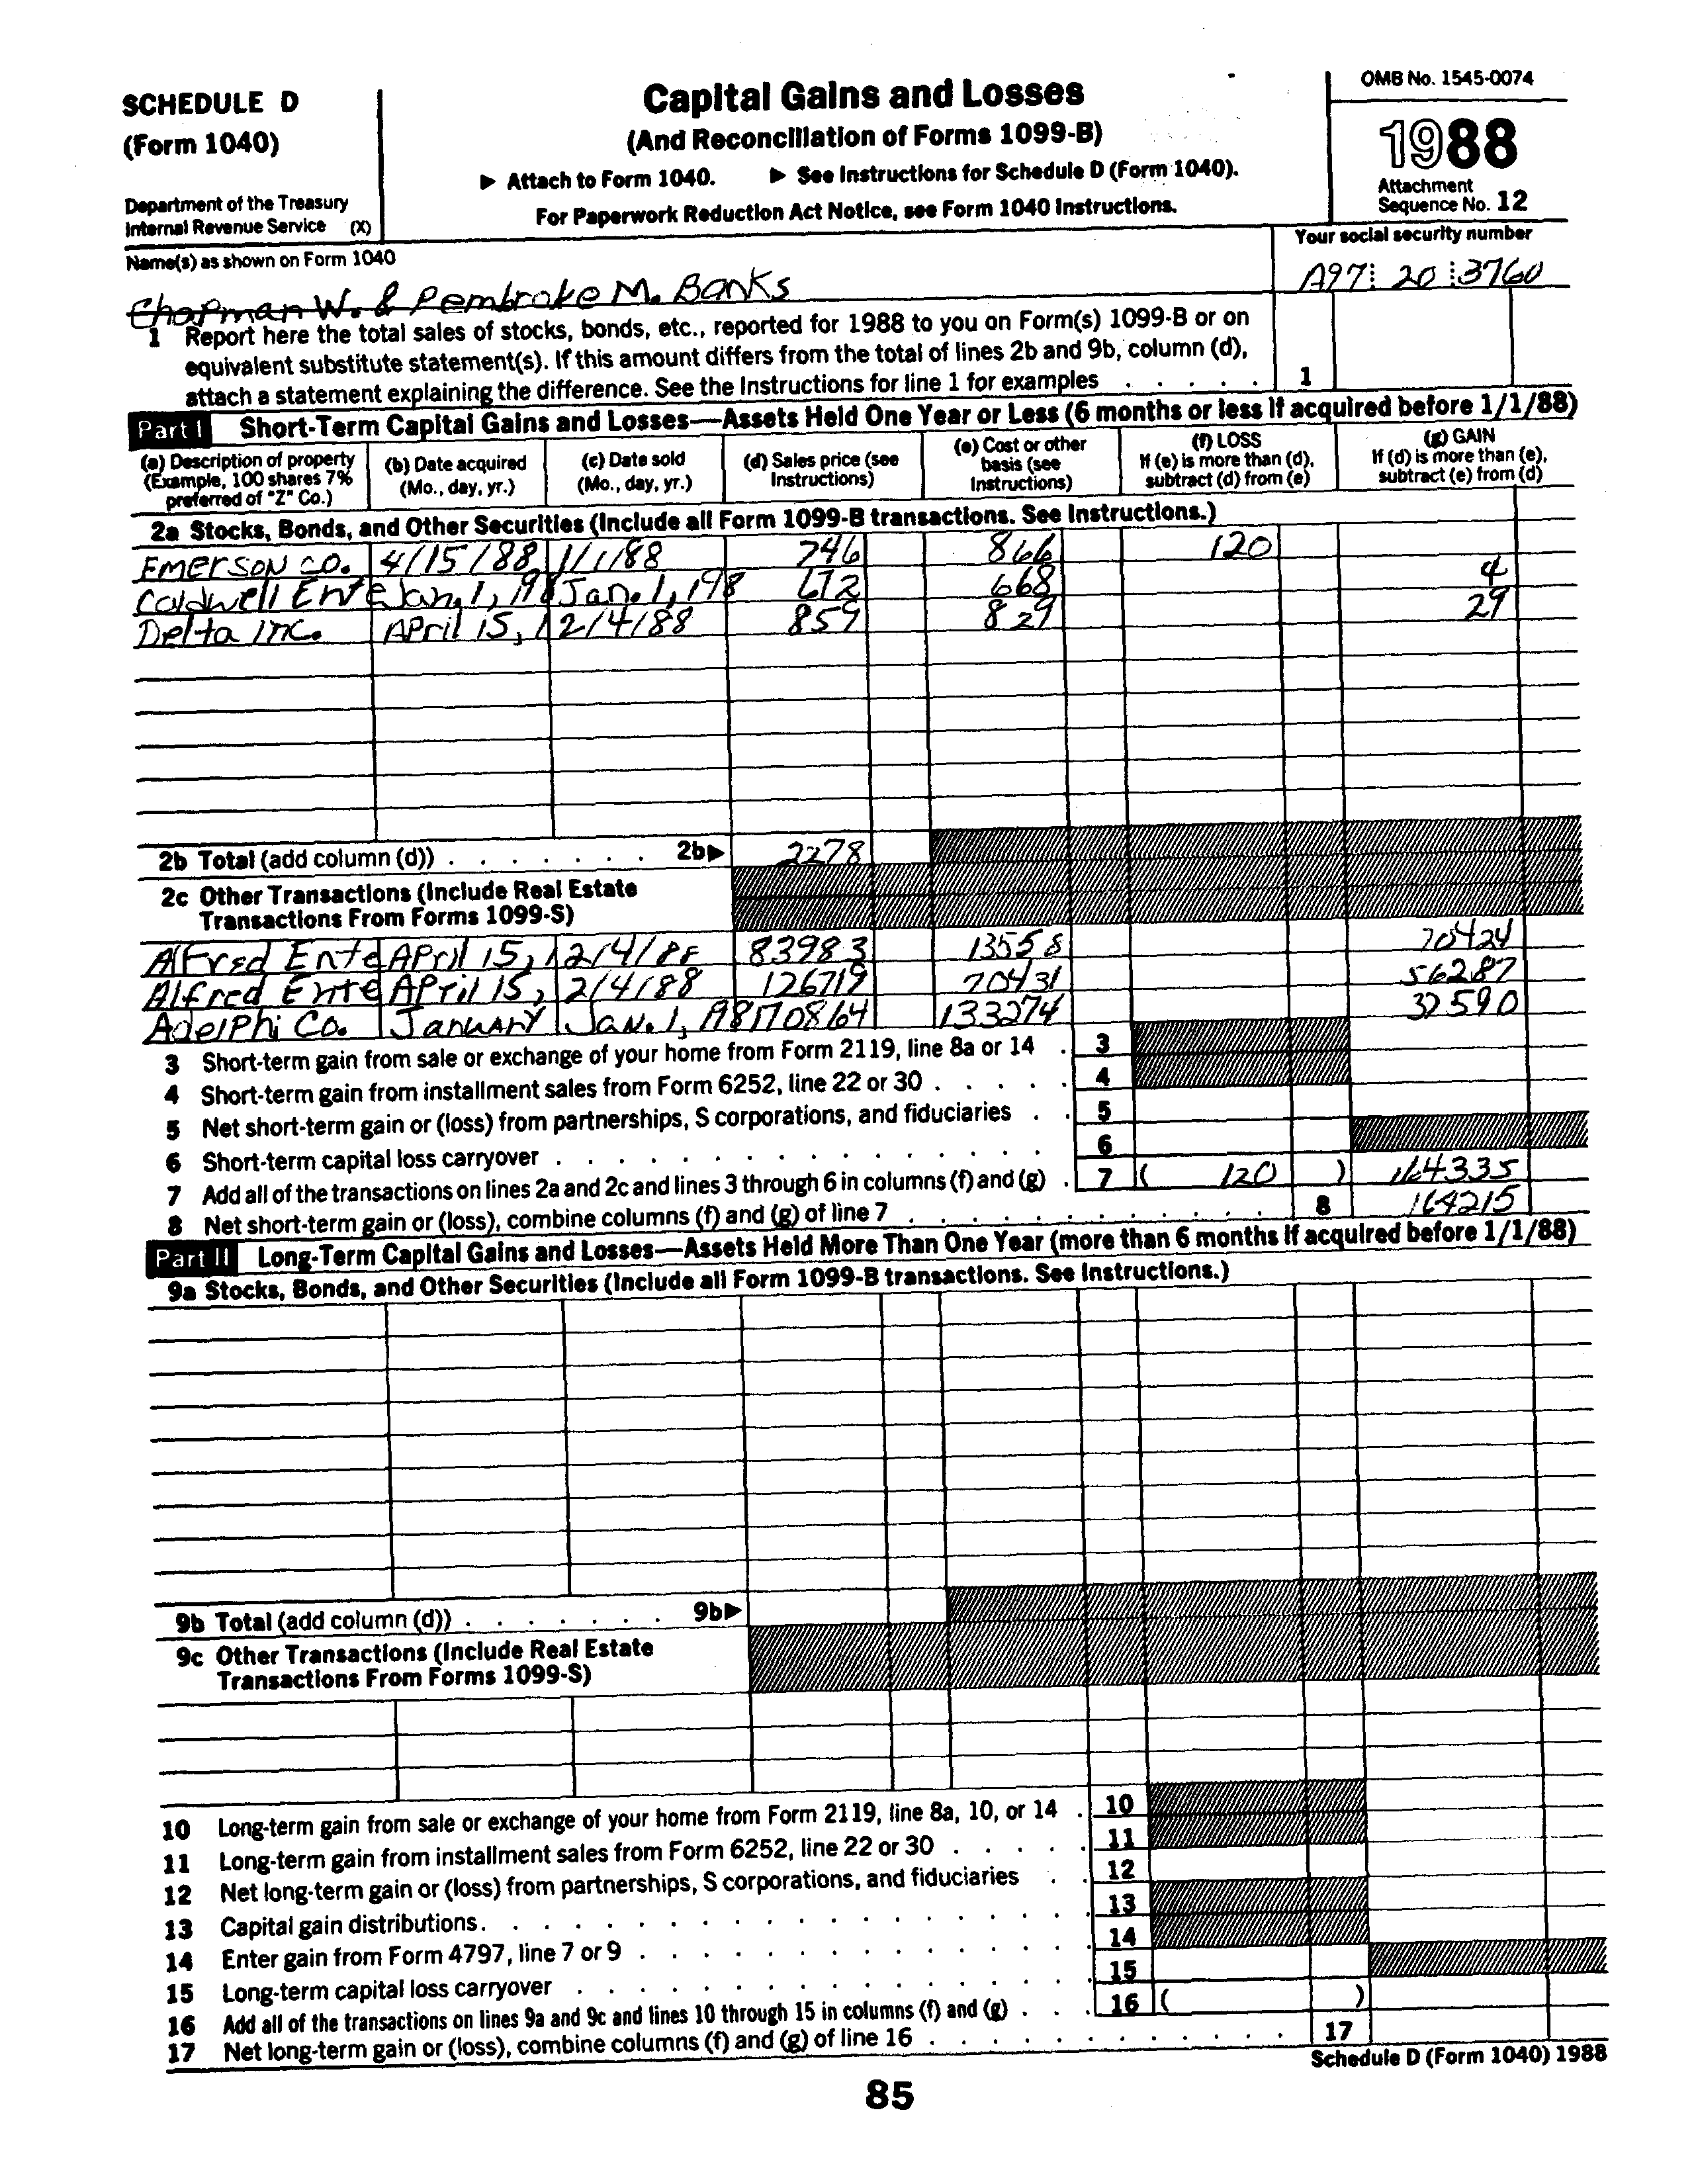 SCHEDULE D
(Form 1040)
Department of the Treasury
Internal Revenue Service (X)
Capital Gains and Losses
(And Reconciliation of Forms 1099-B)
▶ Attach to Form 1040. ▶ See Instructions for Schedule D (Form 1040).
For Paperwork Reduction Act Notice, see Form 1040 Instructions.
OMB No. 1545-0074
1988
Attachment
Sequence No. 12
Name(s) as shown on Form 1040
Chapman W. & Pembroke M. Banks
Your social security number
A97 20 3760
1 Report here the total sales of stocks, bonds, etc., reported for 1988 to you on Form(s) 1099-B or on
equivalent substitute statement(s). If this amount differs from the total of lines 2b and 9b, column (d),
attach a statement explaining the difference. See the Instructions for line 1 for examples . . . . . 1
Part I Short-Term Capital Gains and Losses—Assets Held One Year or Less (6 months or less if acquired before 1/1/88)
(a) Description of property
(Example, 100 shares 7%
preferred of "Z" Co.)
(b) Date acquired
(Mo., day, yr.)
(c) Date sold
(Mo., day, yr.)
(d) Sales price (see
Instructions)
(e) Cost or other
basis (see
Instructions)
(f) LOSS
If (e) is more than (d),
subtract (d) from (e)
(g) GAIN
If (d) is more than (e),
subtract (e) from (d)
2a Stocks, Bonds, and Other Securities (Include all Form 1099-B transactions. See Instructions.)
EMERSON CO. 4/15/88 1/1/88 746 866 120
Caldwell Ente Jan. 1, 198 Jan. 1, 198 672 668 4
Delta Inc. April 15, 1 2/4/88 859 829 29
2b Total (add column (d)) . . . . . . . 2b▶ 2278
2c Other Transactions (Include Real Estate
Transactions From Forms 1099-S)
Alfred Ente April 15, 1 2/4/88 83983 13558 70424
Alfred Ente April 15, 2/4/88 126719 70431 56287
Adelphi Co. January Jan. 1, 198 170864 133274 37590
3 Short-term gain from sale or exchange of your home from Form 2119, line 8a or 14 . 3
4 Short-term gain from installment sales from Form 6252, line 22 or 30 . . . . . 4
5 Net short-term gain or (loss) from partnerships, S corporations, and fiduciaries . . 5
6 Short-term capital loss carryover . . . . . . . . . . . . . . . . 6
7 Add all of the transactions on lines 2a and 2c and lines 3 through 6 in columns (f) and (g) . 7 ( 120 ) 164335
8 Net short-term gain or (loss), combine columns (f) and (g) of line 7 . . . . . . . . . . . . 8 164215
Part II Long-Term Capital Gains and Losses—Assets Held More Than One Year (more than 6 months if acquired before 1/1/88)
9a Stocks, Bonds, and Other Securities (Include all Form 1099-B transactions. See Instructions.)
9b Total (add column (d)) . . . . . . . 9b▶
9c Other Transactions (Include Real Estate
Transactions From Forms 1099-S)
10 Long-term gain from sale or exchange of your home from Form 2119, line 8a, 10, or 14 . 10
11 Long-term gain from installment sales from Form 6252, line 22 or 30 . . . . . 11
12 Net long-term gain or (loss) from partnerships, S corporations, and fiduciaries . . 12
13 Capital gain distributions. . . . . . . . . . . . . . . . . . 13
14 Enter gain from Form 4797, line 7 or 9 . . . . . . . . . . . . . . 14
15 Long-term capital loss carryover . . . . . . . . . . . . . . . . 15
16 Add all of the transactions on lines 9a and 9c and lines 10 through 15 in columns (f) and (g) . . . 16 ( )
17 Net long-term gain or (loss), combine columns (f) and (g) of line 16 . . . . . . . . . . . . 17
Schedule D (Form 1040) 1988
85